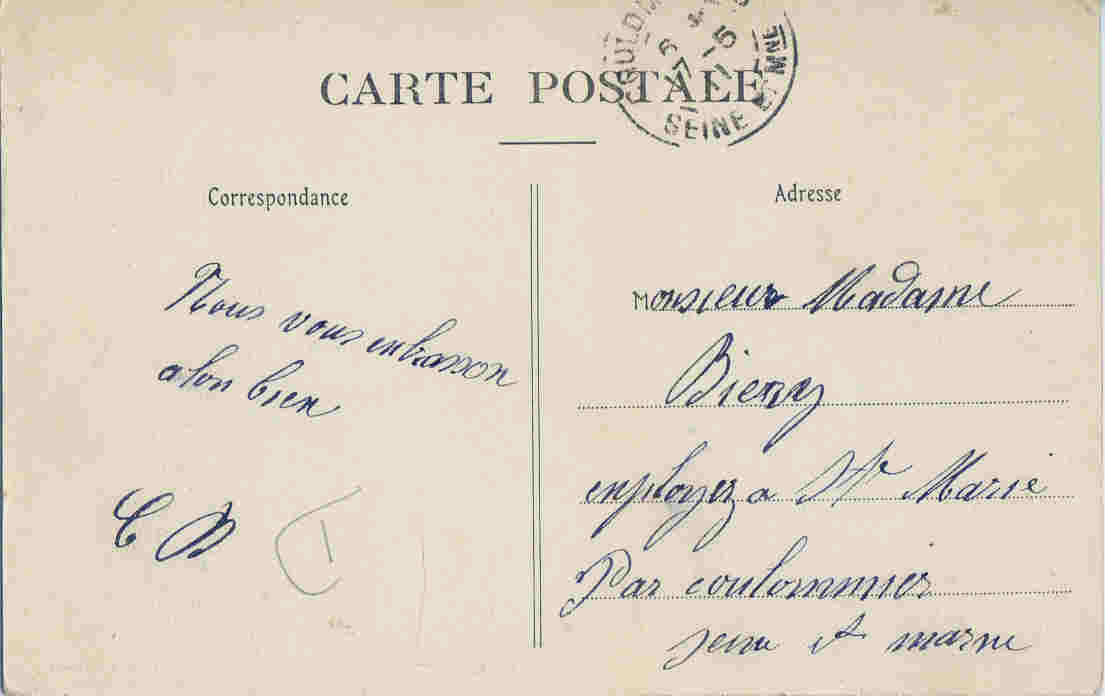 CARTE POSTALE
SEINE ET MNE
Correspondance
Nous vous enbrasson
a ton bien
C B
Adresse
Monsieur Madame
Bieny
employez a Ste Marie
Par coulommier
seine et marne